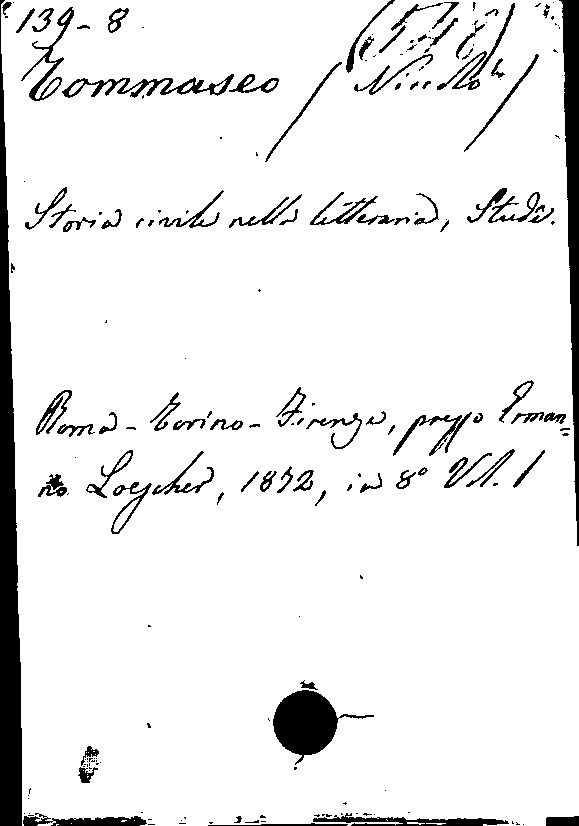 139-8 (548)
Tommaseo (Niccolò)
Storia civile nella letteraria, Studî.
Roma-Torino-Firenze, presso Erman=
no Loescher, 1872, in 8° Vol. 1